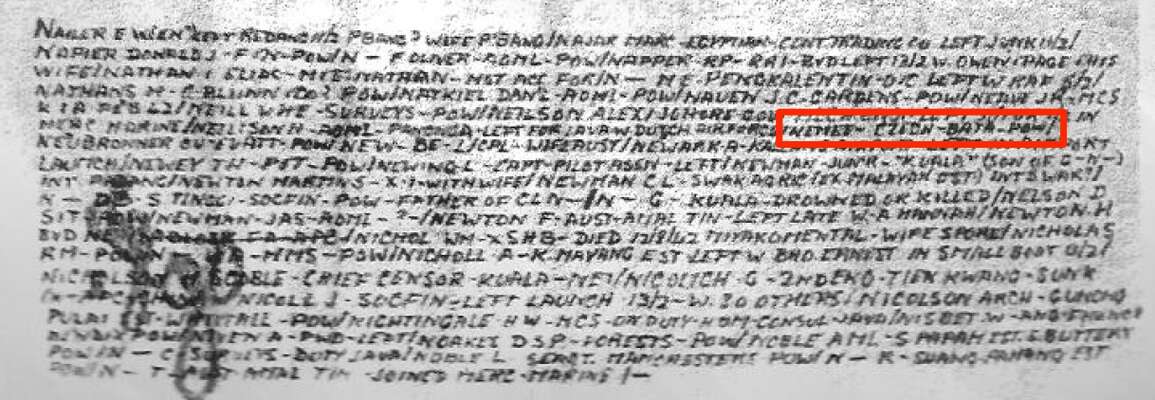 NAGLER E WIEN KEDY REDANG 1/2 P BANG? WIFE P BANG/NAJAR MARC-EGYPTIAN-CONT TRADING CO LEFT JUNK 11/2/
NAPIER DONALD J-F IN-POW/N- F OLIVER-ADML-POW/NAPPER-RP-RAI-BVD LEFT 13/2 W. OWEN (PAGE THIS
WIFE/NATHAN E ELIAS-MTE/NATHAN-MST ACC FOR/N- ME-PENGKALEN TIN-D/C LEFT W KAP 6/2/
NATHANS M-C-BLUNN (CO? POW/NATKIEL DAN'L-ADML-POW/NAVEN J.C-GARDENS-POW/NEAVE JR-MCS
KIA FEB 42/NEILL WME-SURVEYS-POW/NEILSON ALEX/JOHORE GOV IN
MERC MARINE/NEILSON N-ADML-LEFT FOR JAVA W DUTCH AIRFORCE/NEMET-CZECH-BATA-POW/
NEUBRONNER POW/NEW-BE-L/CPL-WIFE AUST/NEWARK-A-
LAUNCH/NEWEY TH-PTT-POW/NEWING L-CAPT-PILOT ASSN-LEFT/NEWMAN-JUN'R-"KUALA" (SON OF G-N-)
INT PADANG/NEWTON MARTIN S-X.1-WITH WIFE/NEWMAN CL-SWAK AGRIC (EX MALAYAN EST) INT SWAK?/
N- S TINGGI-SOCFIN-POW-FATHER OF CLN-/N- G-KUALA-DROWNED OR KILLED/NELSON D
SIT POW/NEWMAN-JAS-ADML-?-/NEWTON F-AUST-AMAL TIN-LEFT LATE W-A HANNAH/NEWTON H
BVD /NICHOL WM-X SHB-DIED 12/8/42 MIYAKO MENTAL-WIFE SPORE/NICHOLAS
RM-POW/N- -MMS-POW/NICHOLL A-K. MAYANG EST LEFT W BRO. ERNEST IN SMALL BOAT 13/2/
NICHOLSON H COBLE-CHIEF CENSOR-KUALA-NEI/NICOLICH G-2ND ENG-TIEN KWANG-SUNK
(X-APC) /NICOLL J-SOCFIN-LEFT LAUNCH 13/2-W. 20 OTHERS/NICOLSON ARCH-GUNONG
PULAI EST-W -POW/NIGHTINGALE HW-MCS-ON DUTY-HBM-CONSUL-JAVA/NISBET W-
POW/NIVEN A-PWD-LEFT/NOAKES DSP-FORESTS-POW/NOBLE AML-S PAPAM EST. & BUTTERY
POW/N- C SURVEYS-DUTY JAVA/NOBLE L SERGT. MANCHESTERS POW/N- R-SUANG-PAHANG EST
POW/N-T-AUST AMAL TIN-JOINED MERC-MARINE/-